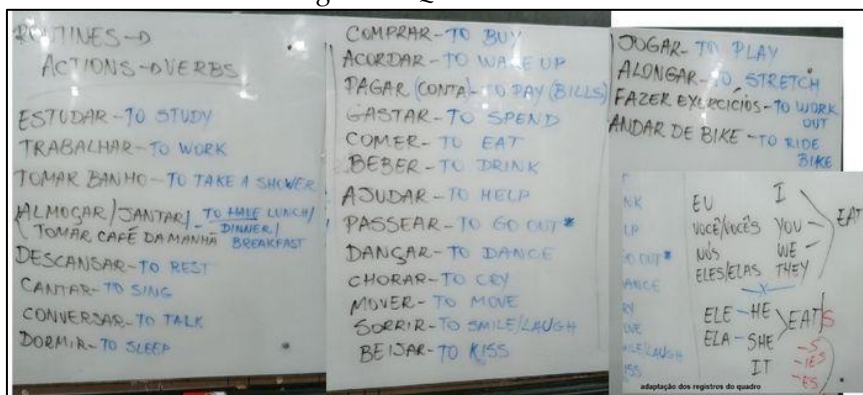 ROUTINES→
ACTIONS→VERBS
ESTUDAR-TO STUDY
TRABALHAR-TO WORK
TOMAR BANHO-TO TAKE A SHOWER
ALMOÇAR/JANTAR/-TO HAVE LUNCH/
TOMAR CAFÉ DA MANHÃ DINNER/
BREAKFAST
DESCANSAR-TO REST
CANTAR-TO SING
CONVERSAR-TO TALK
DORMIR-TO SLEEP
COMPRAR-TO BUY
ACORDAR-TO WAKE UP
PAGAR (CONTA)-TO PAY (BILLS)
GASTAR-TO SPEND
COMER-TO EAT
BEBER-TO DRINK
AJUDAR-TO HELP
PASSEAR-TO GO OUT*
DANÇAR-TO DANCE
CHORAR-TO CRY
MOVER-TO MOVE
SORRIR-TO SMILE/LAUGH
BEIJAR-TO KISS
JOGAR-TO PLAY
ALONGAR-TO STRETCH
FAZER EXERCÍCIOS-TO WORK
OUT
ANDAR DE BIKE-TO RIDE
BIKE
EU I
VOCÊ/VOCÊS YOU
NÓS WE
ELES/ELAS THEY
EAT
ELE-HE
ELA-SHE
IT
EAT/S
-S
-IES
-ES
NK
LP
GO OUT*
ANCE
RY
OVE
MILE/LAUGH
ISS
adaptação dos registros do quadro